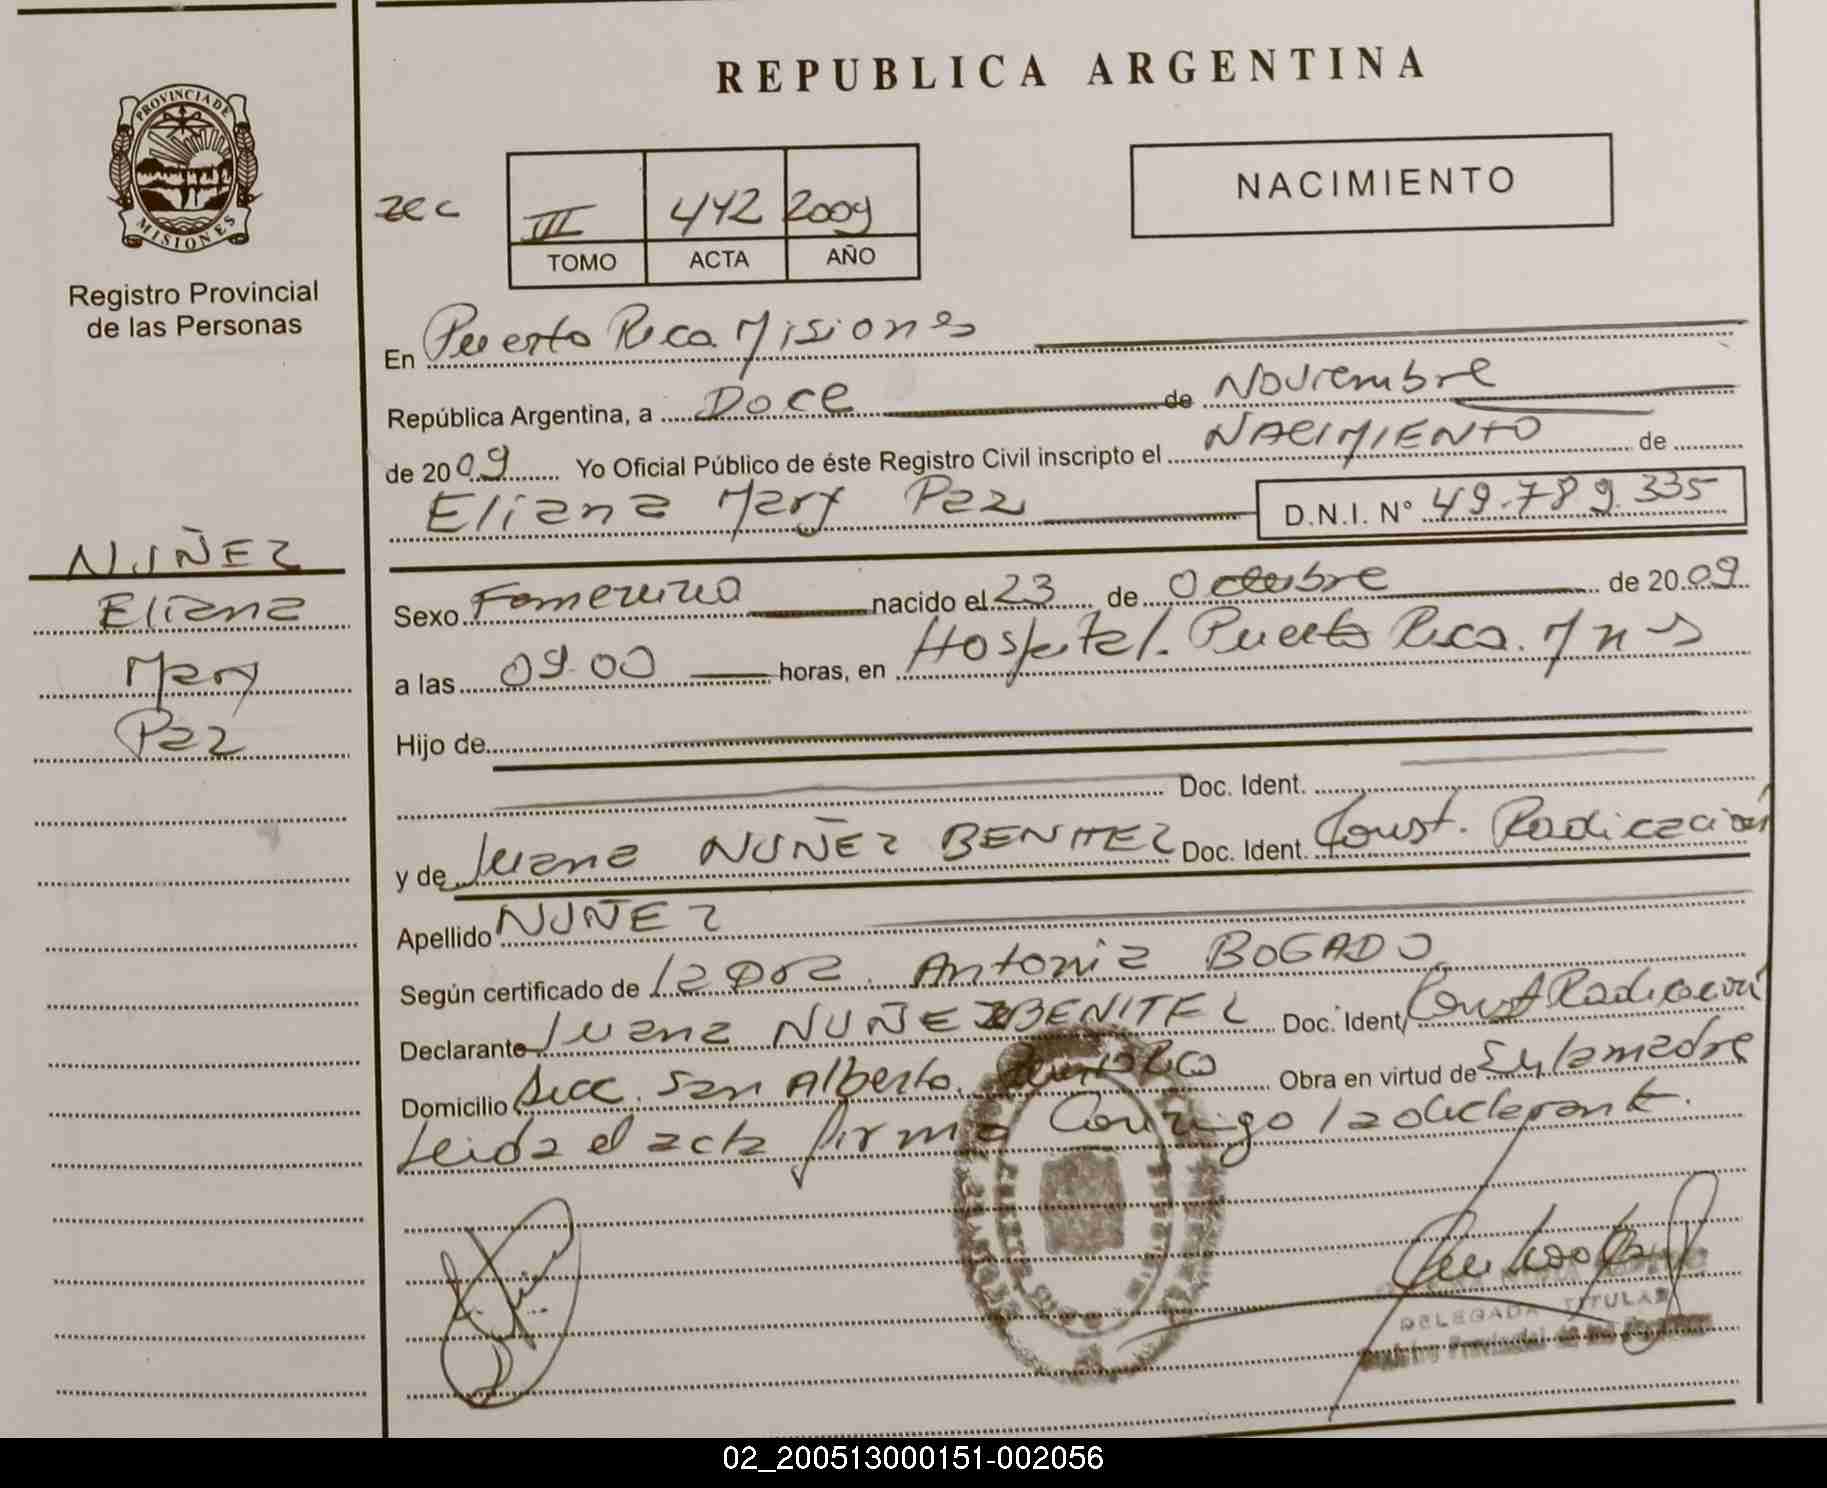 REPUBLICA ARGENTINA
PROVINCIA DE
MISIONES
Registro Provincial
de las Personas
NUÑEZ
Eliana
Mary
Paz
zec
III 442 2009
TOMO ACTA AÑO
NACIMIENTO
En Puerto Rico Misiones
República Argentina, a Doce de Noviembre
de 2009 Yo Oficial Público de éste Registro Civil inscripto el NACIMIENTO de
Eliana Mary Paz D.N.I. N° 49.789.335
Sexo Femenino nacido el 23 de Octubre de 2009
a las 09.00 horas, en Hospital. Puerto Rico. Mnes
Hijo de
Doc. Ident.
y de Juana NUÑEZ BENITEZ Doc. Ident. Const. Radicación
Apellido NUÑEZ
Según certificado de la Dra. Antonia BOGADO
Declarante Juana NUÑEZ BENITEZ Doc. Ident. Const Radicación
Domicilio Secc. San Alberto. Obra en virtud de Es la madre
Leida el acta firma Conmigo la declarante.
DELEGADA TITULAR
Registro Provincial de las Personas
02_200513000151-002056